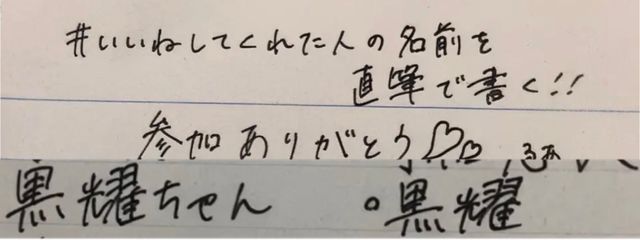 #いいねしてくれた人の名前を
直筆で書く!!
参加ありがとう♡♡
黒耀ちゃん 。黒耀